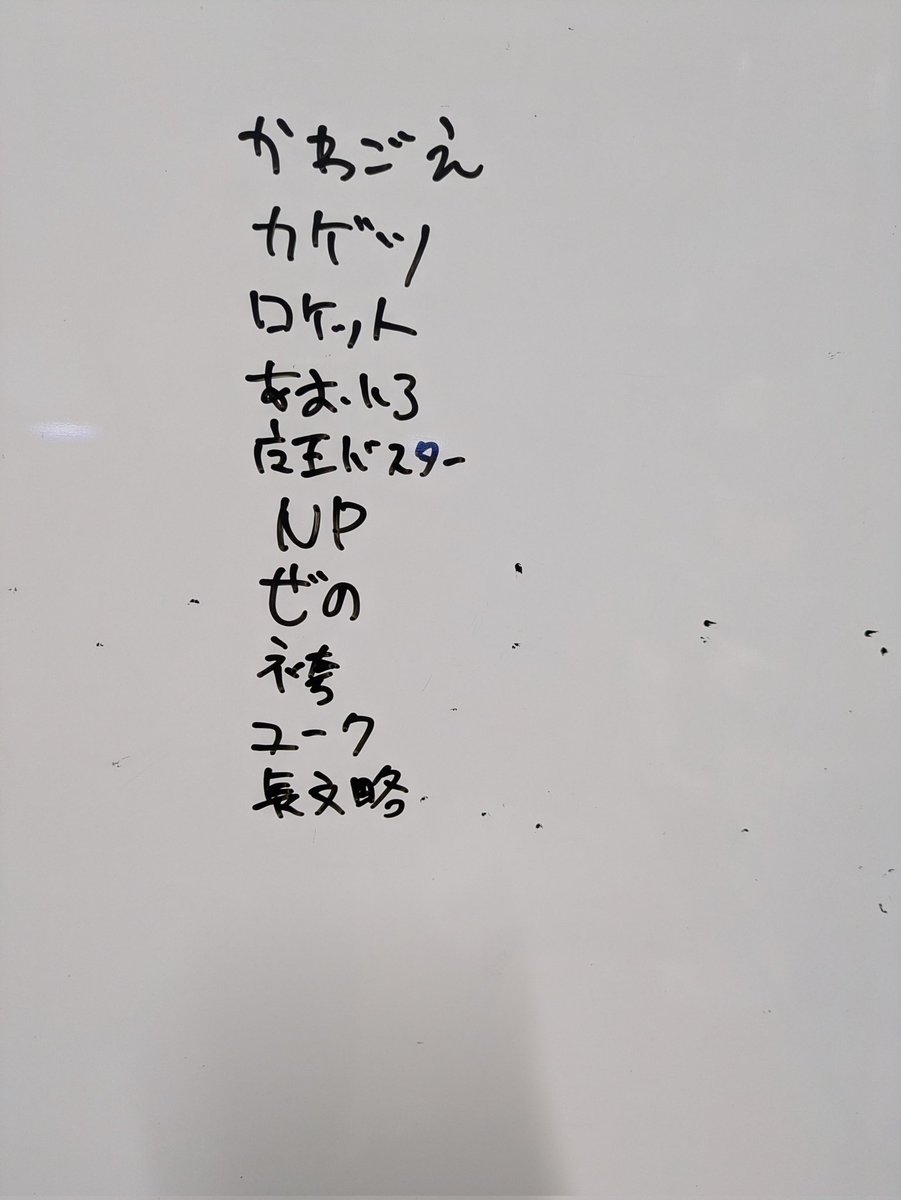 かわごえ
カゲツ
ロケット
あおいろ
店王バスター
NP
ぜの
袴
ユーク
長文略